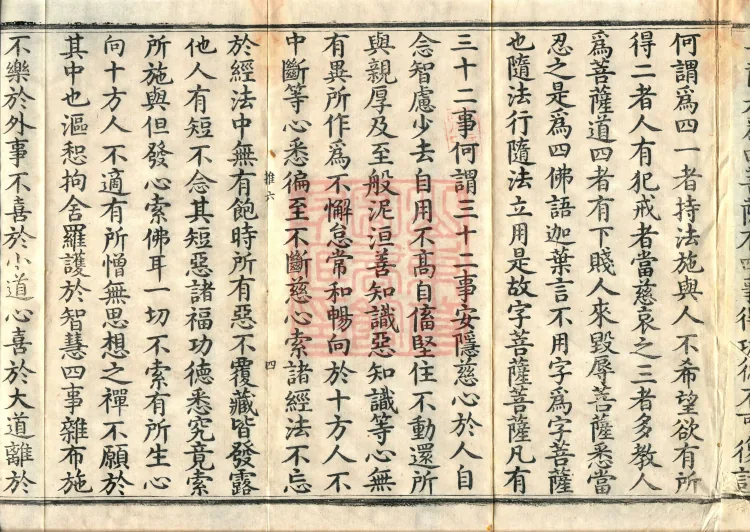 得功德不可復計
何謂爲四一者持法施與人不希望欲有所
得二者人有犯戒者當慈哀之三者多教人
爲菩薩道四者有下賤人來毀辱菩薩悉當
忍之是爲四佛語迦葉言不用字爲字菩薩
也隨法行隨法立用是故字菩薩菩薩凡有
三十二事何謂三十二事安隱慈心於人自
念智慮少去自用不髙自憍堅住不動還所
與親厚及至般泥洹善知識惡知識等心無
有異所作爲不懈怠常和暢向於十方人不
中斷等心悉徧至不斷慈心索諸經法不忘
推六 四
於經法中無有飽時所有惡不覆藏皆發露
他人有短不念其短惡諸福功德悉究竟索
所施與但發心索佛耳一切不索有所生心
向十方人不適有所憎無思想之禪不願於
其中也漚惒拘舍羅護於智慧四事雜布施
不樂於外事不喜於小道心喜於大道離於